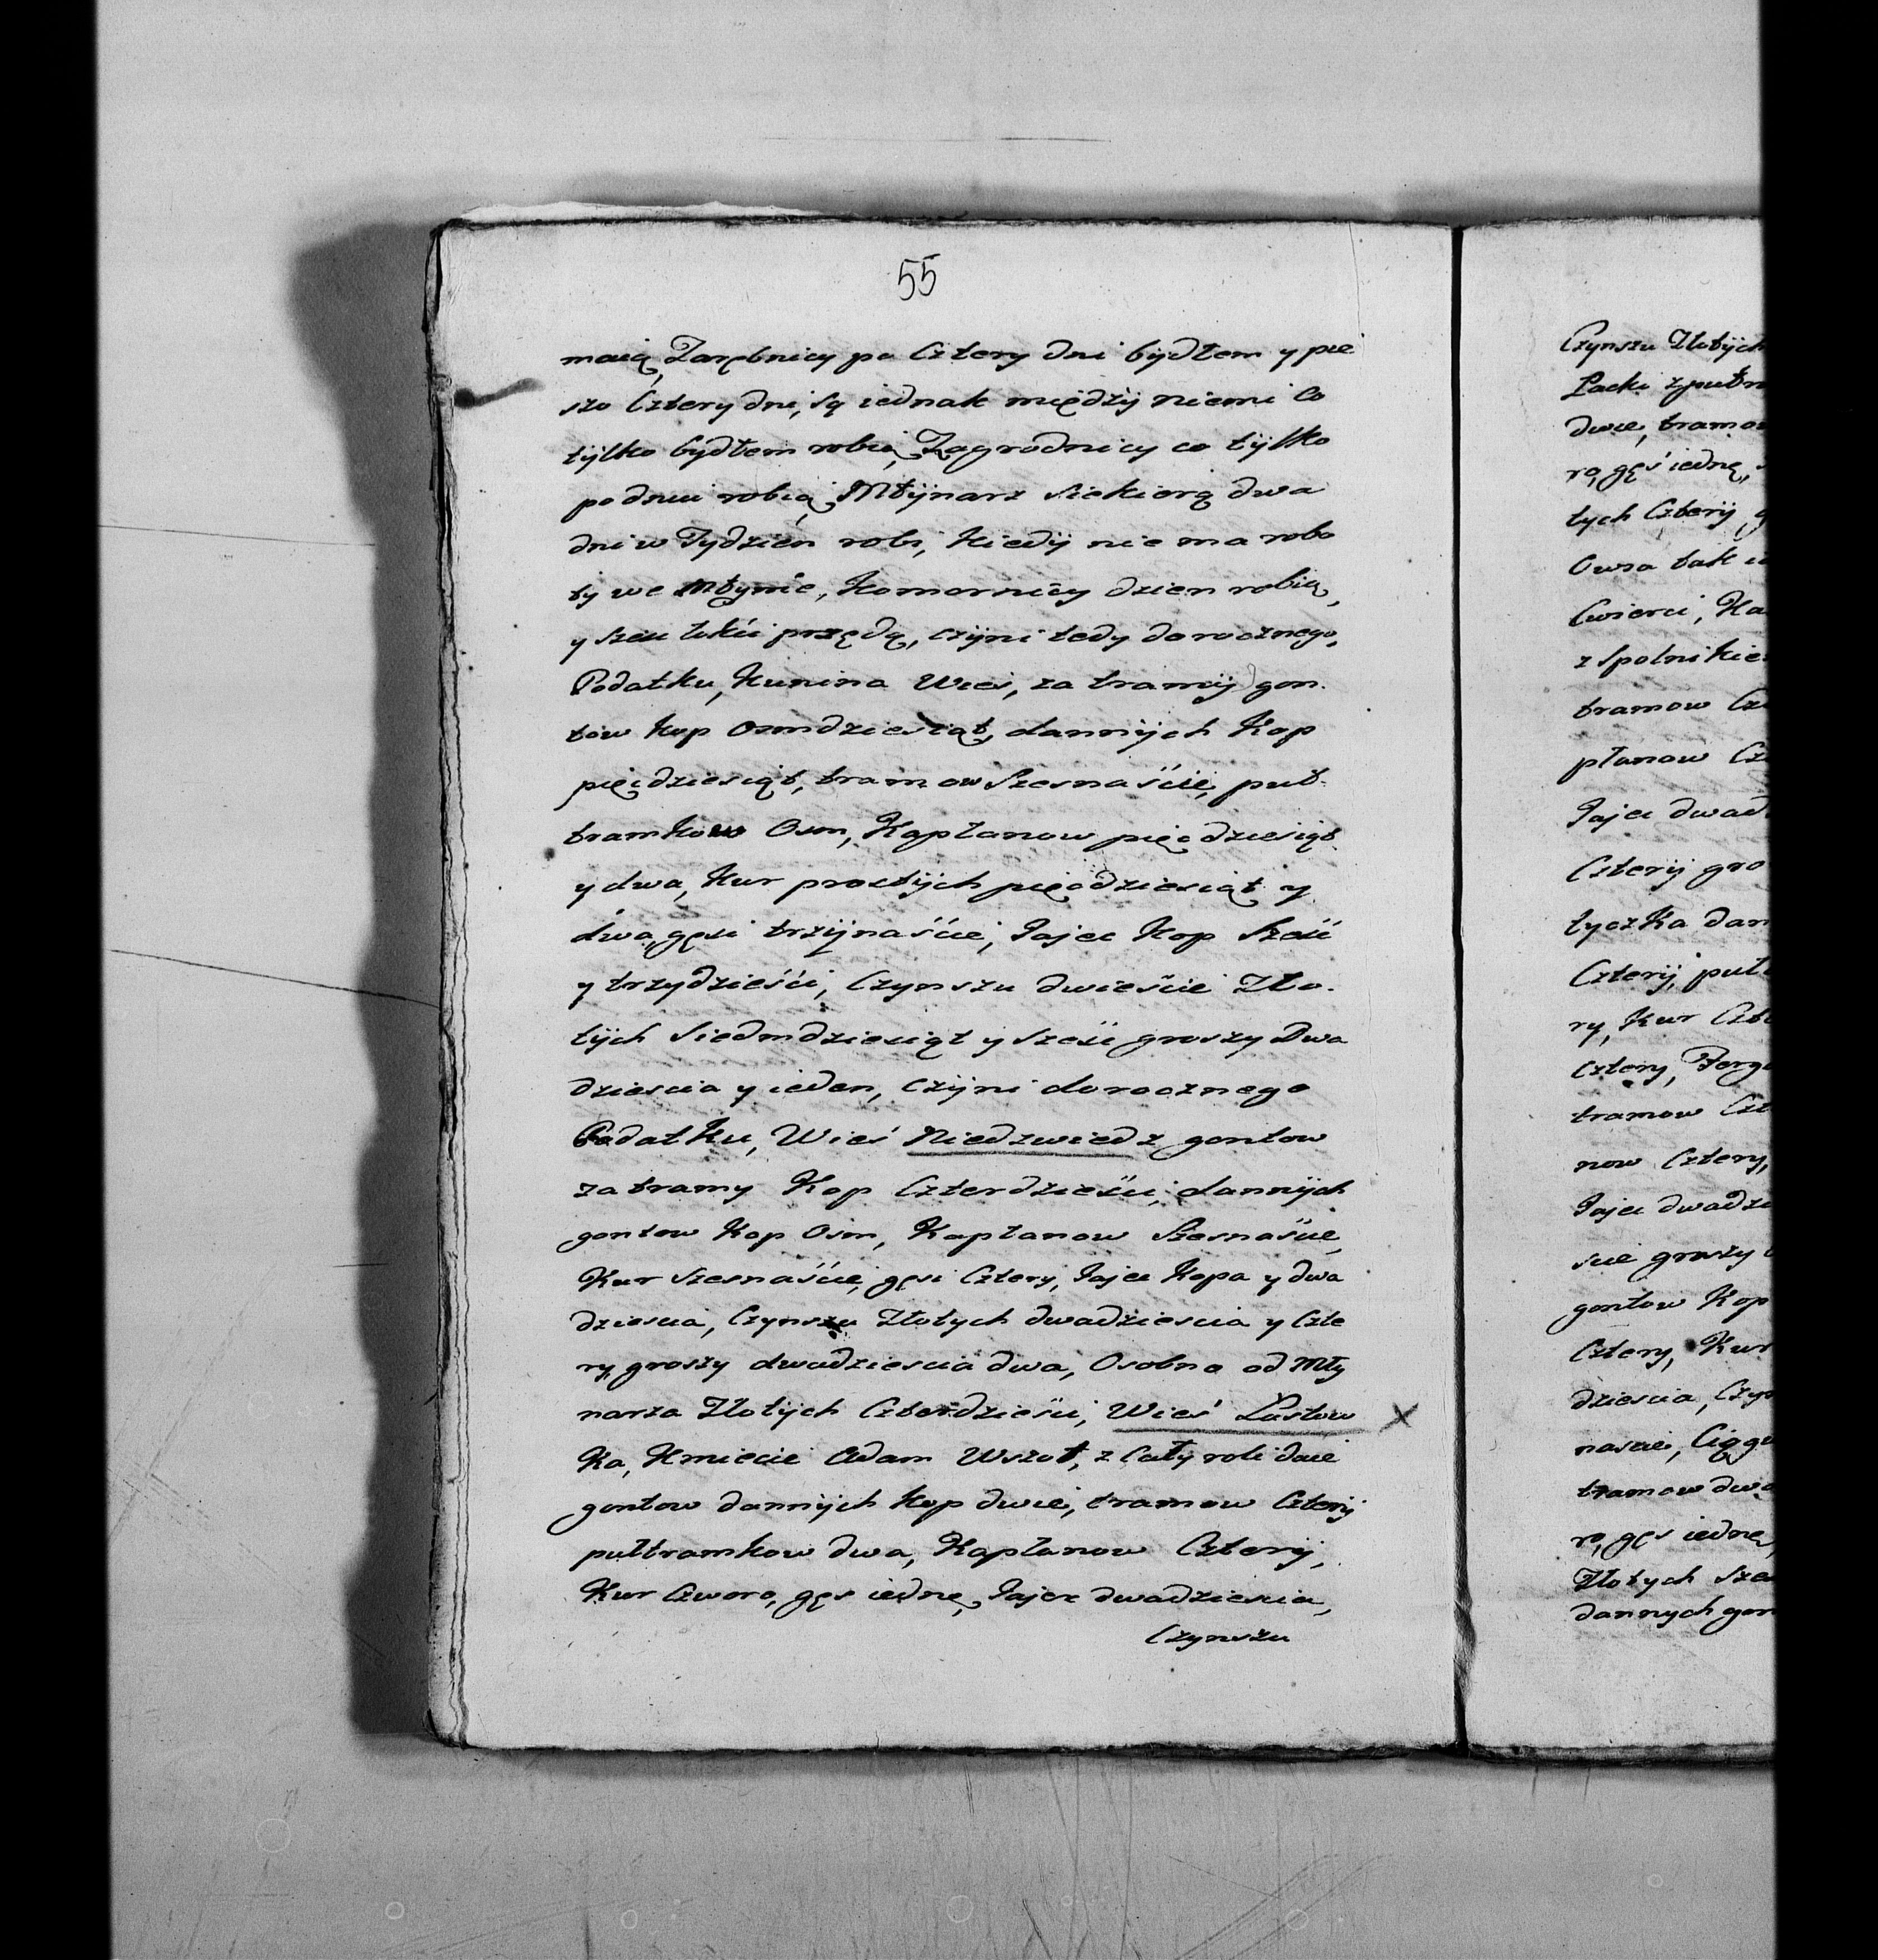 55
maią, Zarębnicy po Cztery dni bydłem y pie
szo Cztery dni, są iednak między niemi Co
tylko bydłem robią, Zagrodnicy co tylko
po dniu robią, Młynarz siekierą dwa
dni w Tydzień robi, kiedy nie ma robo
ty we Młynie, Komornicy dzien robią,
y Sześć łokci przędą, czyni tedy dorocznego,
Podatku, Kunina Wieś, za tramy gon.
tów kop Osmdziesiąt, dannych Kop
pięćdziesiąt, tramow Szesnaście, puł
tramkow Osm, Kapłanow pięćdziesiąt
y dwa, Kur prostych pięćdziesiąt y
dwa, gęsi trzynaście, Jajec Kop Sześć
y trzydzieści, Czynszu dwieście Zło.
tych Siedmdziesiąt y sześć groszy Dwa
dziescia y ieden, czyni dorocznego
Podatku, Wieś Niedzwiedz gontow
za tramy Kop Czterdzieści, dannych
gontow Kop Osm, Kapłanow Szesnaście,
Kur Szesnaście, gęsi Cztery, Jajec Kopa y dwa
dziescia, Czynszu Złotych dwadziescia y Czte
ry, groszy dwadziescia dwa, Osobno od Mły
narza Złotych Czterdzieści, Wieś Łostow
Ka, Kmiecie Adam Wszoł, z Cały roli daie
gontow dannych kop dwie, tramow Cztery
pułtramkow dwa, Kapłanow Cztery,
Kur Czworo, gęs iednę, Jajec dwadziescia,
Czynszu
Czynszu Złotych
dwie,
rą, gęś iednę,
tych Cztery,
Owsa tak
Cwierci,
z Spolnikie
tramow
płanow
Jajec
Cztery gro
tyczka dan
Cztery, puł
ry, Kur
Cztery,
tramow
now Cztery,
Jajec
scie groszy
gontow Kop
Cztery, Kur
dziescia,
nascie,
tramow dwa
rą, gęs iednę,
Złotych
dannych gon